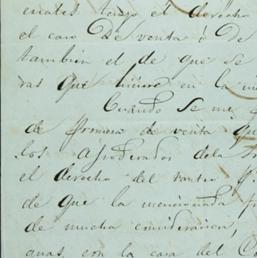 cuales tengo el derecho
el caso De venta ó De
tambien el de que se
ras que hiciere en la
Cuando se me
de firmara de venta que
los apoderados dela
el derecho del tanto
de que la mencionada
de mucha consideracion,
quas con la casa del